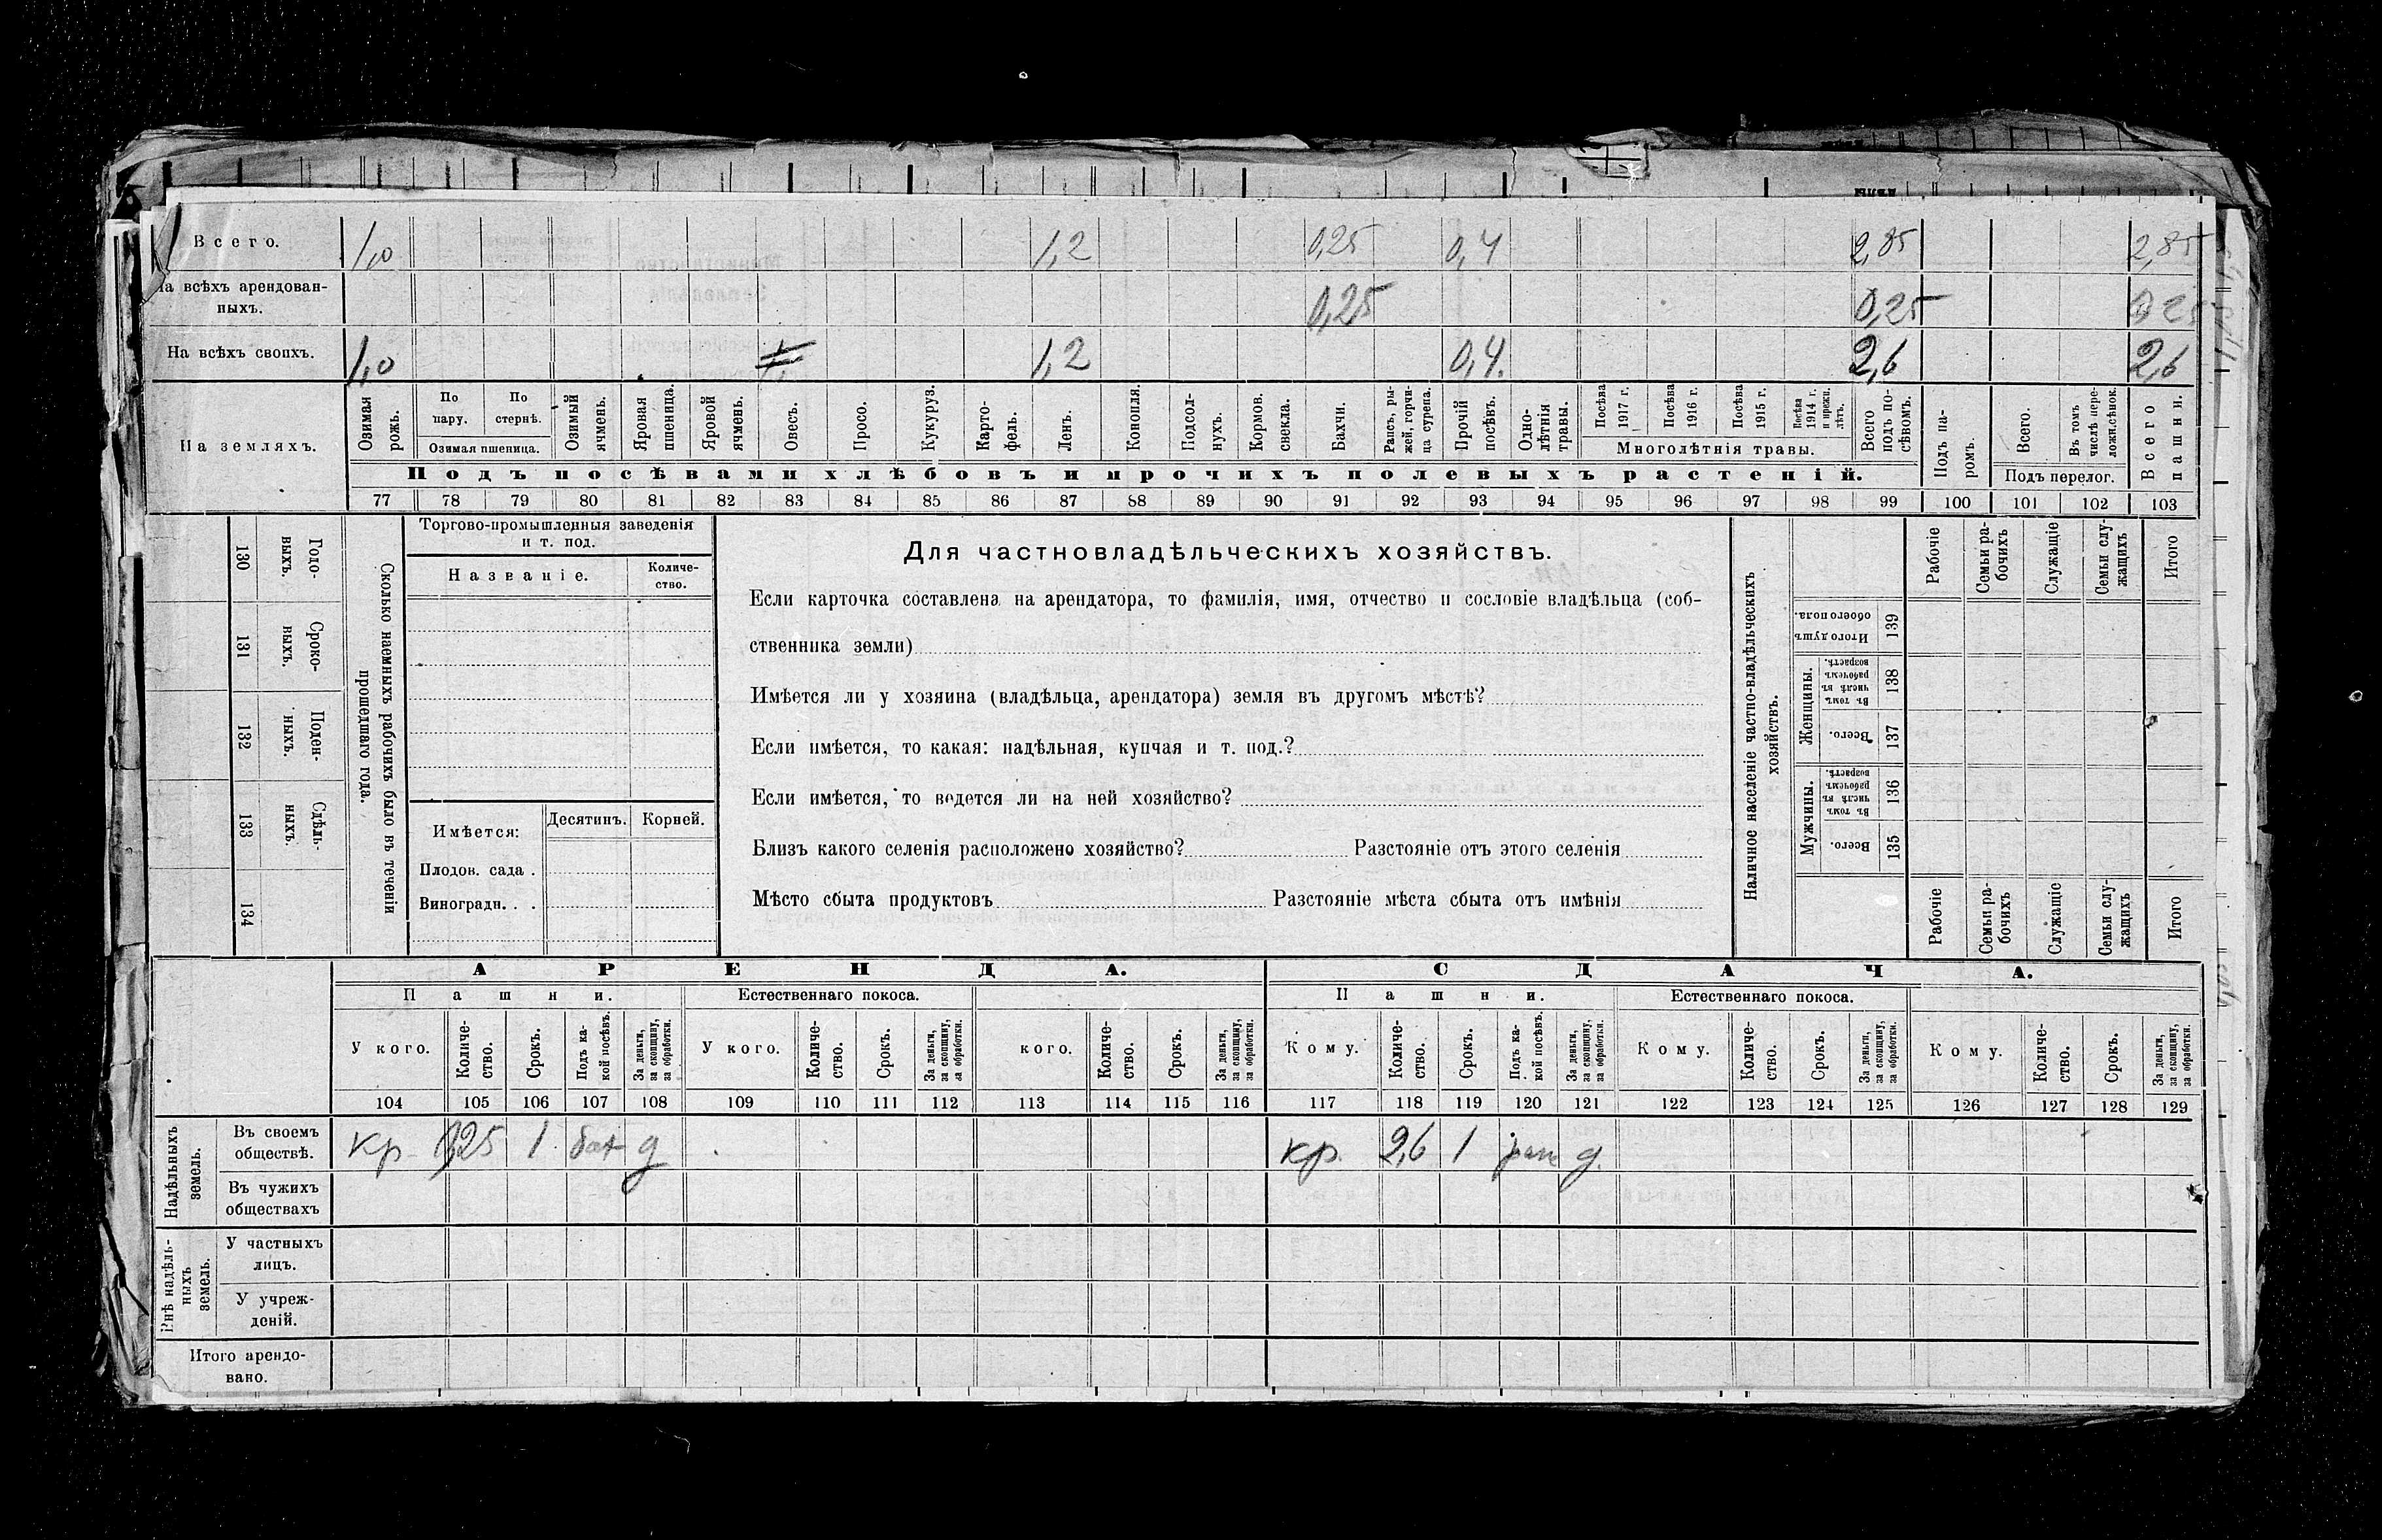 Всего. 1,0 1,2 0,25 0,4 2,85 2,85
На всѣхъ арендован-
ныхъ. 0,25 0,25 0 25
На всѣхъ своихъ. 1,0 1,2 0,4. 2,6 2,6
На земляхъ.
Озимая рожь.
По пару.
По стернѣ.
Озимая пшеница.
Озимый ячмень.
Яровая пшеница.
Яровой ячмень.
Овесъ.
Просо.
Кукуруз.
Карто-
фель.
Ленъ.
Конопля.
Подсол-
нухъ.
Кормов. свекла.
Бахчи.
Рапсъ, ры-
жей, горчи-
ца сурепа.
Прочій посѣвъ.
Одно-
лѣтнія травы.
Посѣва 1917 г.
Посѣва 1916 г.
Посѣва 1915 г.
Посѣва 1914 г. и прежн. лѣтъ.
Многолѣтнія травы.
Всего подъ по-
сѣвомъ.
Подъ па-
ромъ.
Всего.
Въ томъ числѣ пере-
ложн.сѣнок.
Подъ перелог.
Всего пашни.
Подъ посѣвами хлѣбовъ и прочихъ полевыхъ растеній.
77 78 79 80 81 82 83 84 85 86 87 88 89 90 91 92 93 94 95 96 97 98 99 100 101 102 103
130 Годо-
выхъ.
131 Сроко-
выхъ.
132 Поден-
ныхъ.
133 Сдѣль-
ныхъ.
134
Сколько наемныхъ рабочихъ было въ теченіи
прошедшаго года.
Торгово-промышленныя заведенія
и т. под.
Названіе.
Количе-
ство.
Имѣется:
Десятинъ. Корней.
Плодов. сада .
Виноградн. . .
Для частновладѣльческихъ хозяйствъ.
Если карточка составлена на арендатора, то фамилія, имя, отчество и сословіе владѣльца (соб-
ственника земли)
Имѣется ли у хозяина (владѣльца, арендатора) земля въ другомъ мѣстѣ?
Если имѣется, то какая: надѣльная, купчая и т. под.?
Если имѣется, то ведется ли на ней хозяйство?
Близъ какого селенія расположено хозяйство? Разстояніе отъ этого селенія
Мѣсто сбыта продуктовъ Разстояніе мѣста сбыта отъ имѣнія
Наличное населеніе частно-владѣльческихъ
хозяйствъ.
Рабочіе
Семьи ра-
бочихъ
Служащіе
Семьи слу-
жащихъ
Итого
Итого душъ обоего пола. 139
Женщины.
Въ томъ числѣ въ рабочемъ возрастѣ. 138
Всего. 137
Мужчины.
Въ томъ числѣ въ рабочемъ возрастѣ. 136
Всего. 135
Рабочіе
Семьи ра-
бочихъ
Служащіе
Семьи слу-
жащихъ
Итого
АРЕНДА. СДАЧА.
Пашни. Естественнаго покоса. Пашни. Естественнаго покоса.
У кого.
Количе-
ство.
Срокъ.
Подъ ка-
кой посѣвъ.
За деньги, за скопщину, за обработки.
У кого.
Количе-
ство.
Срокъ.
За деньги, за скопщину, за обработки.
кого.
Количе-
ство.
Срокъ.
За деньги, за скопщину, за обработки.
Кому.
Количе-
ство.
Срокъ.
Подъ ка-
кой посѣвъ.
За деньги, за скопщину, за обработки.
Кому.
Количе-
ство.
Срокъ.
За деньги, за скопщину, за обработки.
Кому.
Количе-
ство.
Срокъ.
За деньги, за скопщину, за обработки.
104 105 106 107 108 109 110 111 112 113 114 115 116 117 118 119 120 121 122 123 124 125 126 127 128 129
Надѣльныхъ
земель.
Въ своемъ
обществѣ. кр 0,25 1 бах д кр. 2,6 1 д.
Въ чужихъ
обществахъ
Внѣ надѣль-
ныхъ
земель.
У частныхъ
лицъ.
У учреж-
деній.
Итого арендо-
вано.